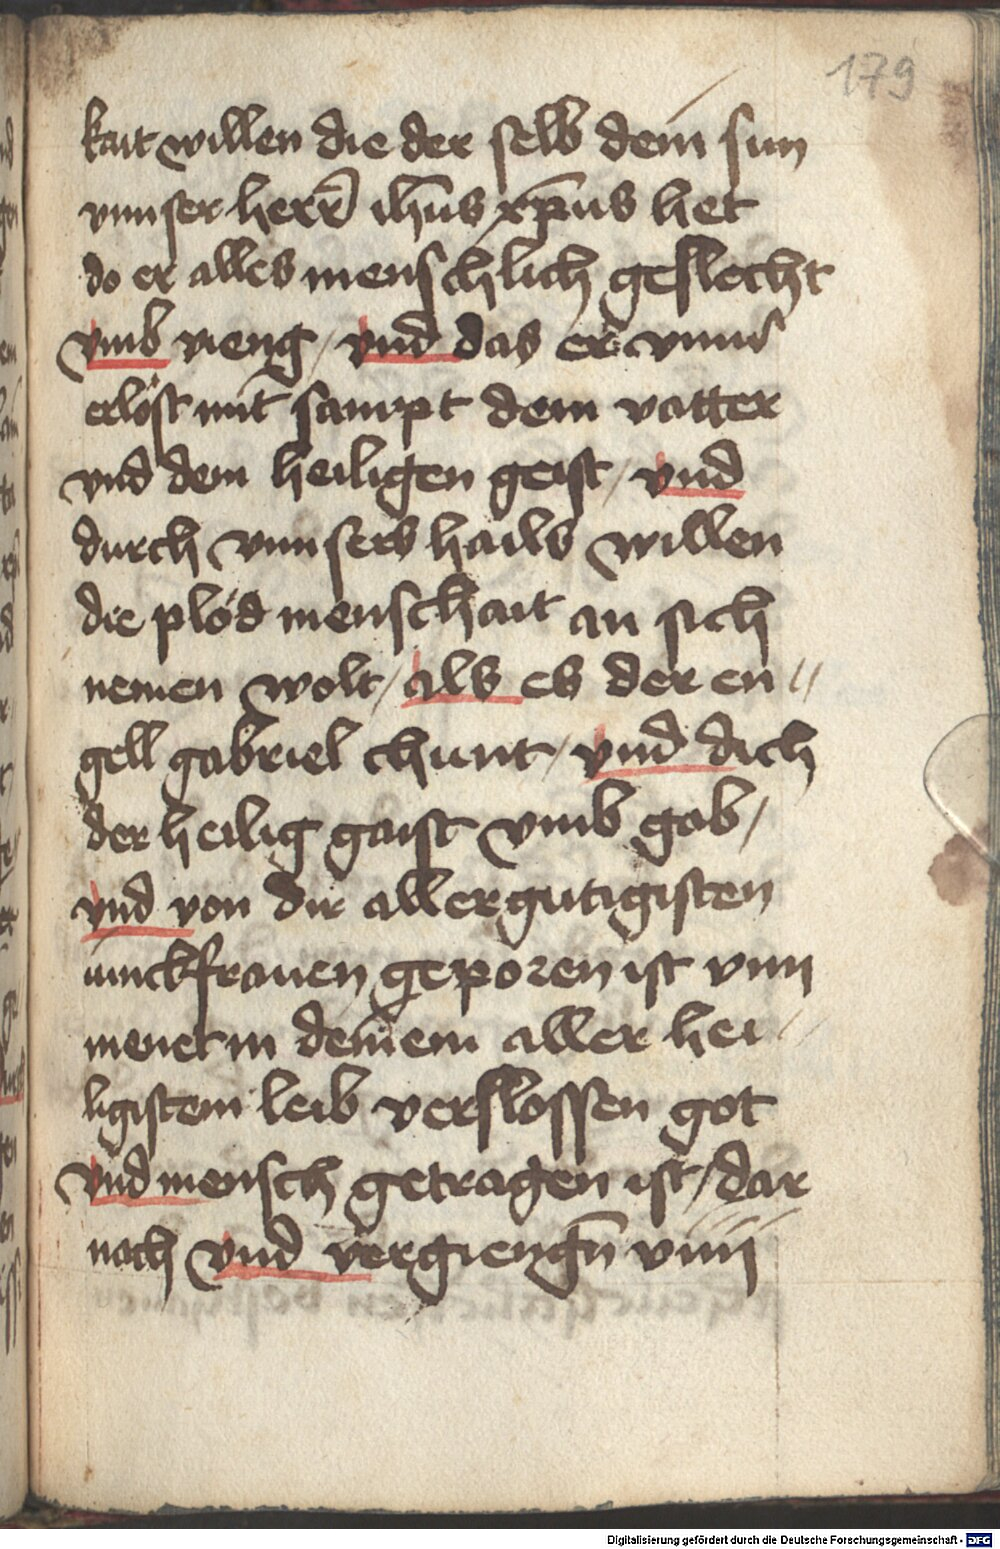 179
kait willen die der selb dein sun
vnnser herr̄ ih̄us xp̄us het
do er alles menschlich geslecht
vmb vieng / vnd das er vnns
erlöst mit sampt dem vatter
vnd dem heiligen geist / vnd
durch vnnsers hails willen
die plöd menschait an sich
nemen wolt / als es der en //
gell gabriel chunt / vnd dich
der heilig gaist vmb gab /
vnd von dir allergutigisten
iunckfrauen geporen ist vnn
menet in deinem aller hei /
ligistem leib verslossen got
vnd mensch getragen ist / dar
nach vnd vergiengn̄ viiii
Digitalisierung gefördert durch die Deutsche Forschungsgemeinschaft - DFG